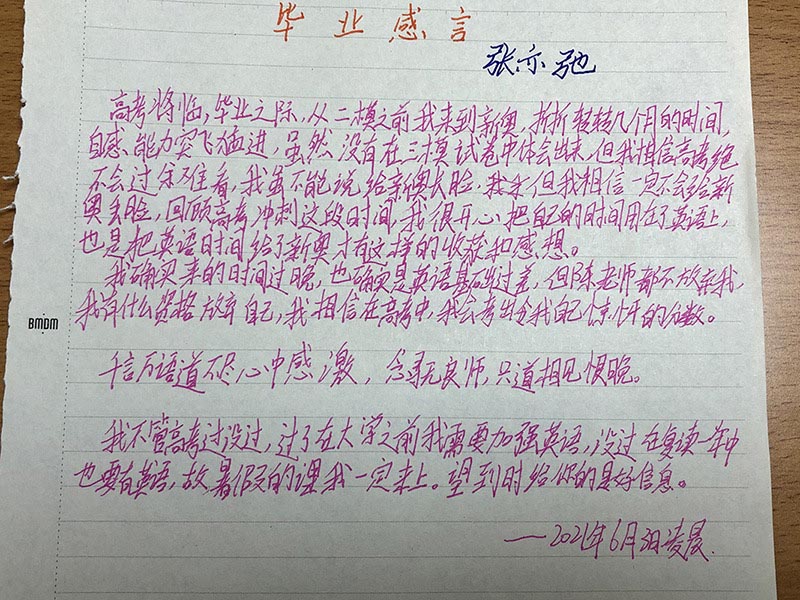 毕业感言
张亦弛
高考将临,毕业之际,从二模之前我来到新奥,折折转转几个月的时间,
自感能力突飞猛进,虽然没有在三模试卷中体会出来,但我相信高考绝
不会过余难看,我虽不能说给新奥长脸,但我相信一定不会给新
奥丢脸,回顾高考冲刺这段时间,我很开心把自己的时间用在了英语上,
也是把英语时间给了新奥才有这样的收获和感想。
我确实来的时间过晚,也确实是英语基础过差,但陈老师都不放弃我,
我有什么资格放弃自己,我相信在高考中,我会考出令我自己惊讶的分数。
千言万语道不尽心中感激,念寻无良师,只道相见恨晚。
我不管高考过没过,过了在大学之前我需要加强英语,没过在复读一年中
也要有英语,故暑假的课我一定来上。望到时给你的是好信息。
——2021年6月3日凌晨.
BMDM